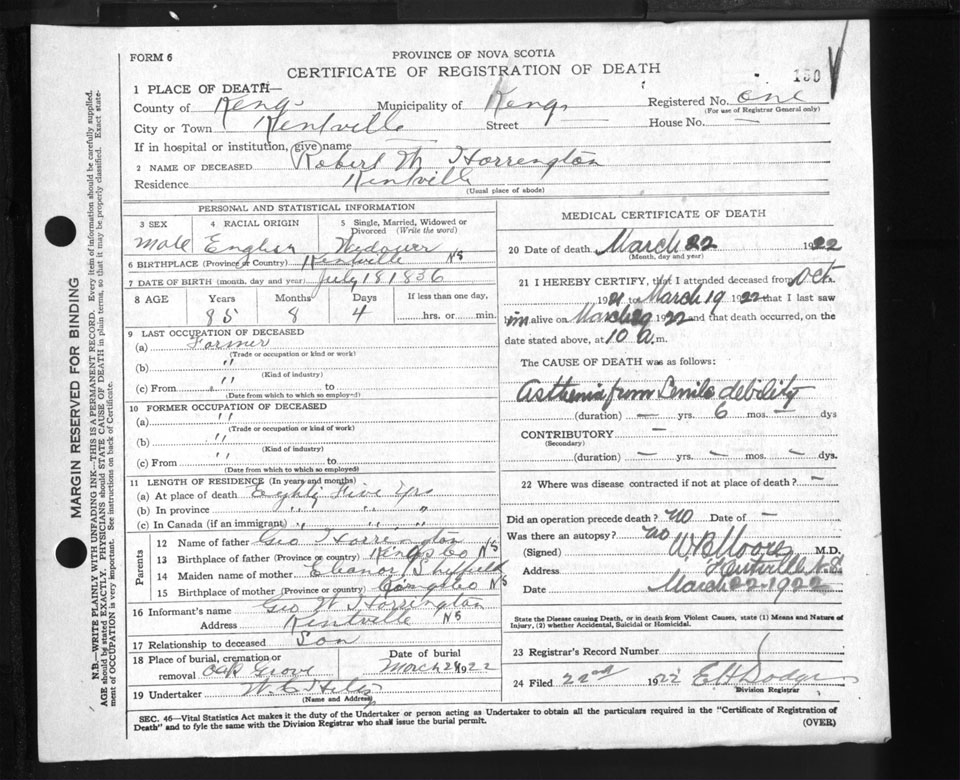 FORM 6
PROVINCE OF NOVA SCOTIA
CERTIFICATE OF REGISTRATION OF DEATH
150
1 PLACE OF DEATH—
County of Kings Municipality of Kings Registered No. one
(For use of Registrar General only)
City or Town Kentville Street — House No. —
If in hospital or institution, give name
2 NAME OF DECEASED Robert W Harrington
Residence Kentville
(Usual place of abode)
PERSONAL AND STATISTICAL INFORMATION
3 SEX 4 RACIAL ORIGIN 5 Single, Married, Widowed or Divorced (Write the word)
Male English Widower
6 BIRTHPLACE (Province or Country) Kentville NS
7 DATE OF BIRTH (month, day and year) July 18 1836
8 AGE Years Months Days If less than one day,
85 8 4 ....hrs. or .... min.
9 LAST OCCUPATION OF DECEASED
(a) Farmer
(Trade or occupation or kind or work)
(b) "
(Kind of industry)
(c) From " to
(Date from which to which so employed)
10 FORMER OCCUPATION OF DECEASED
(a) "
(Trade or occupation or kind of work)
(b) "
(Kind of industry)
(c) From to
(Date from which to which so employed)
11 LENGTH OF RESIDENCE (In years and months)
(a) At place of death Eighty Five Yrs
(b) In province " " "
(c) In Canada (if an immigrant) " " "
Parents
12 Name of father Geo Harrington
13 Birthplace of father (Province or country) Kings Co NS
14 Maiden name of mother Eleanor Sheffield
15 Birthplace of mother (Province or country) Kings Co NS
16 Informant's name Geo W Harrington
Address Kentville NS
17 Relationship to deceased Son
18 Place of burial, cremation or removal Oak Grove
Date of burial March 24 1922
19 Undertaker W. C.
(Name and Address)
MEDICAL CERTIFICATE OF DEATH
20 Date of death March 22 1922
(Month, day and year)
21 I HEREBY CERTIFY, that I attended deceased from Oct.
1921 to March 19 1922 that I last saw
him alive on March 1922 and that death occurred, on the
date stated above, at 10 a.m.
The CAUSE OF DEATH was as follows:
Asthenia from Senile debility
(duration) — yrs. 6 mos. — dys
CONTRIBUTORY —
(Secondary)
(duration) — yrs — mos — dys
22 Where was disease contracted if not at place of death? —
Did an operation precede death? no Date of —
Was there an autopsy? no
(Signed) W B Moore M.D.
Address Kentville N.S.
Date March 22-1922
State the Disease causing Death, or in death from Violent Causes, state (1) Means and Nature of
Injury, (2) whether Accidental, Suicidal or Homicidal.
23 Registrar's Record Number 1
24 Filed 22nd 1922 E H Dodge
Division Registrar
SEC. 46—Vital Statistics Act makes it the duty of the Undertaker or person acting as Undertaker to obtain all the particulars required in the "Certificate of Registration of
Death" and to fyle the same with the Division Registrar who shall issue the burial permit.
(OVER)
MARGIN RESERVED FOR BINDING
N.B.—WRITE PLAINLY WITH UNFADING INK—THIS IS A PERMANENT RECORD. Every item of information should be carefully supplied.
AGE should be stated EXACTLY. PHYSICIANS should STATE CAUSE OF DEATH in plain terms, so that it may be properly classified. Exact state-
ment of OCCUPATION is very important. See instructions on back of Certificate.